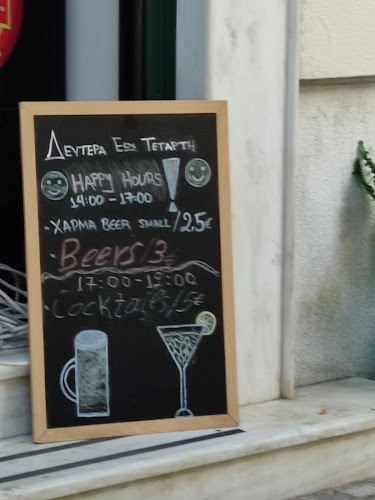 Δευτερα Εως Τεταρτη
Happy Hours!
14:00 - 17:00
- ΧΑΡΜΑ BEER SMALL / 2.5€
- Beers / 3€
17:00 - 19:00
- Cocktails / 5€